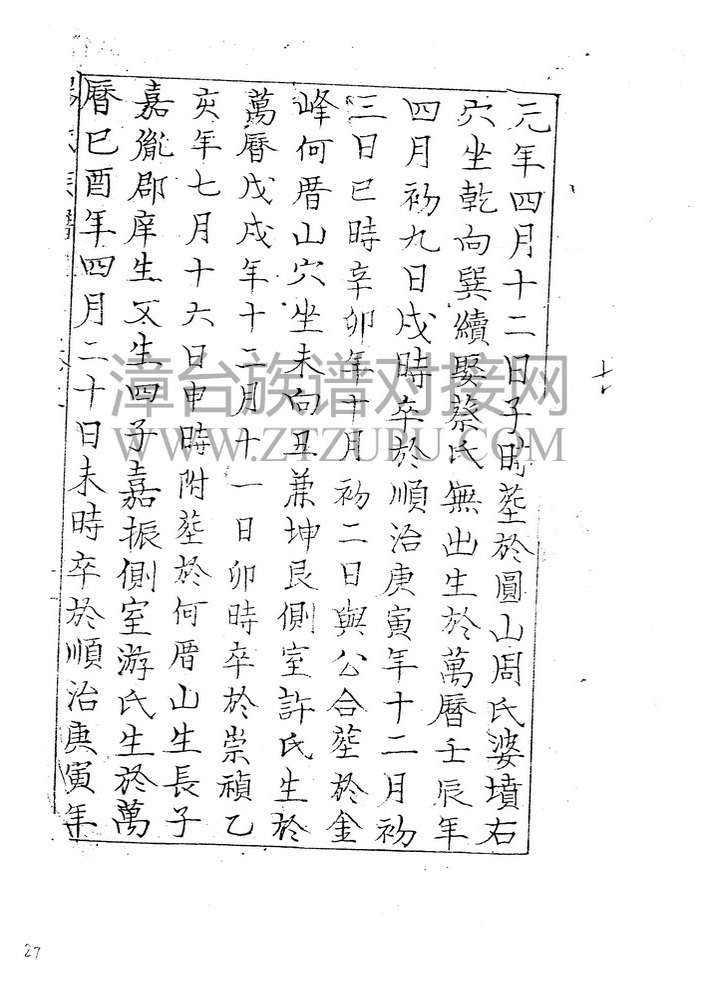 元年四月十二日子時塟於圓山周氏婆墳右
穴坐乾向巽續娶蔡氏無出生於萬曆壬辰年
四月初九日戌時卒於順治庚寅年十二月初
三日巳時辛卯年十月初二日與公合塟於金
峰何厝山穴坐未向丑兼坤艮側室許氏生於
萬曆戊戌年十二月十一日卯時卒於崇禎乙
亥年七月十六日申時附塟於何厝山生長子
嘉胤郡庠生又生四子嘉振側室游氏生於萬
曆巳酉年四月二十日未時卒於順治庚寅年
漳台族谱对接网
WWW.ZTZUPU.COM
27